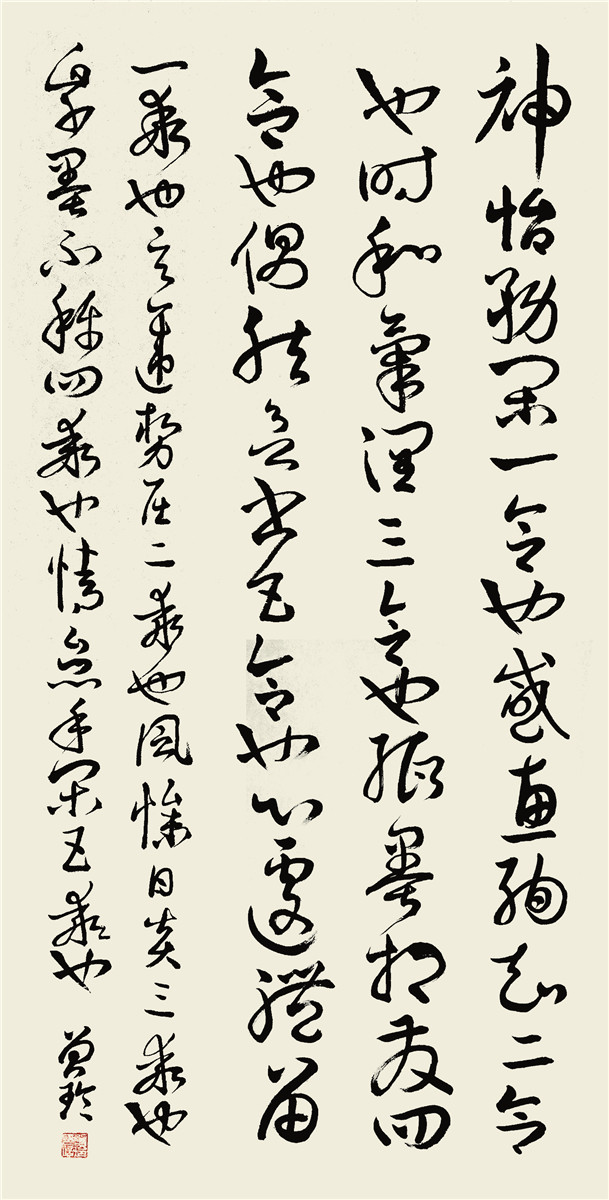 神怡務閑一合也感惠徇知二合
也時和氣潤三合也紙墨相發四
合也偶然欲書五合也心遽體留
一乖也意違勢屈二乖也風燥日炎三乖也
紙墨不稱四乖也情怠手闌五乖也